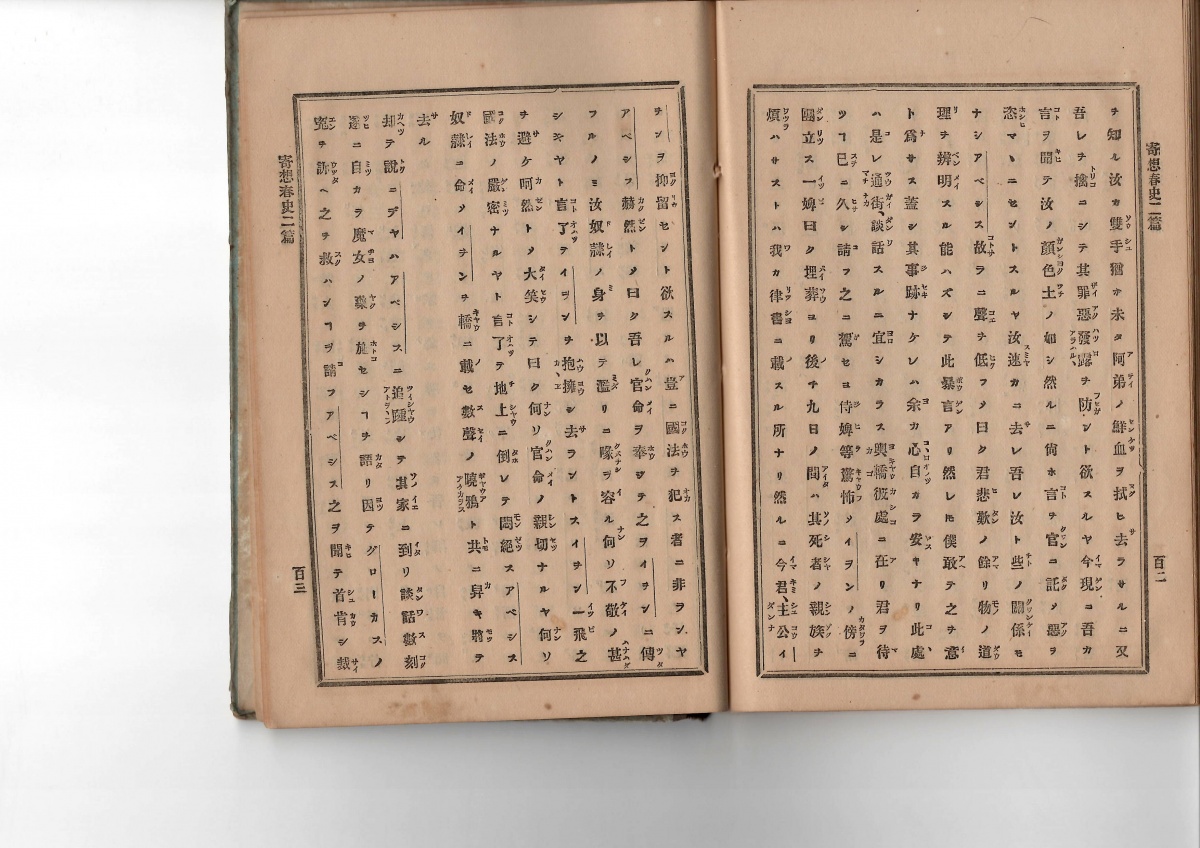 寄想春史二篇
百二
ヲ知ル汝カ雙手猶ホ未タ阿弟ノ鮮血ヲ拭ヒ去ラサルニ又
吾レヲ擒ニシテ其罪惡發露ヲ防ント欲スルヤ今現コ吾カ
言ヲ聞テ汝ノ顏色土ノ如シ然ルニ尙ホ言ヲ官ニ託メ惡ヲ
恣マヽニセントスルヤ汝速カニ去レ吾レ汝ト些ノ關係モ
ナシアベシス故ラニ聲ヲ低フメ曰ク君悲歎ノ餘リ物ノ道
理ヲ辨明スル能ハズシテ此暴言アリ然レㇳモ僕敢テ之ヲ意
ト爲サス蓋シ其事跡ナケレハ余カ心自カラ安キナリ此處
ハ是レ通街、談話スルニ宜シカラス輿轎彼處ニ在リ君ヲ待
ツヿ已ニ久シ請フ之ニ駕セヨ侍婢等驚怖メイヲンノ傍ニ
圍立ス一婢曰ク埋葬ヨリ後チ九日ノ間ハ其死者ノ親族ヲ
煩ハサストハ我カ律書ニ載スル所ナリ然ルニ今君、主公イ
ヲンヲ抑留セント欲スルハ豈ニ國法ヲ犯ス者ニ非ヲンヤ
アベシフ赫然トメ曰ク吾レ官命ヲ奉ジテ之ヲイヲンニ傳
フルノミ汝奴隷ノ身ヲ以テ濫リニ喙ヲ容ル何ソ不敬ノ甚
シキヤト言了テイヲンヲ抱擁シ去ラントスイヲン一飛之
ヲ避ケ呵然トメ大笑シテ曰ク何ソ官命ノ親切ナルヤ何ソ
國法ノ嚴密ナルヤト言了テ地上ニ倒レテ悶絕スアベシス
奴隷ニ命メイヲンヲ轎ニ載セ數聲ノ曉鴉ト共ニ舁キ將テ
去ル
却テ說ニデヤハアベシスニ追踵シテ其家ニ到リ談話數刻
遂ニ自カラ魔女ノ藥ヲ施セシヿヲ語リ因テグローカスノ
冤ヲ訴ヘ之ヲ救ハンヿヲ請フアベシス之ヲ聞テ首肯シ裁
寄想春史二篇
百三